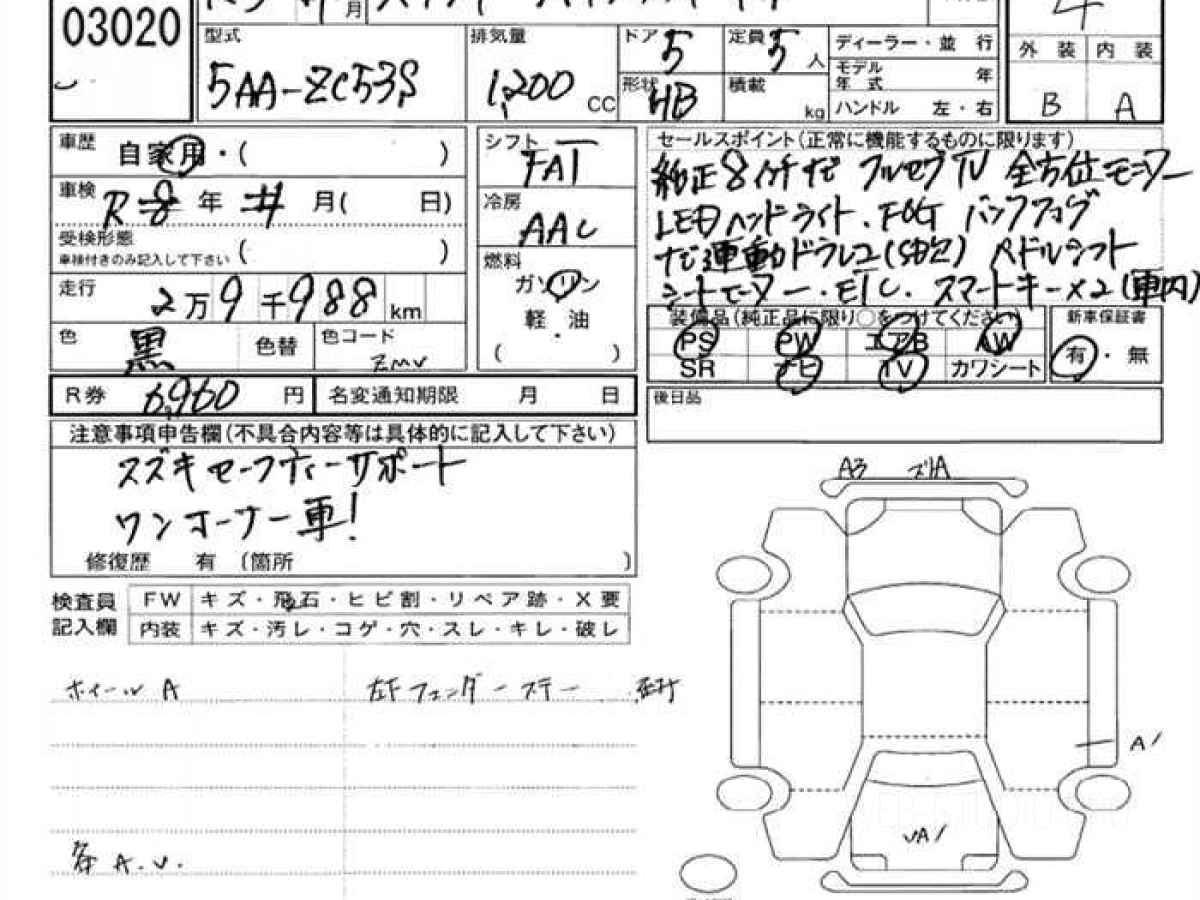 03020
4
型式
5AA-ZC53S
排気量
1,200 CC
ドア 5
定員 5 人
形状 HB
積載 kg
ディーラー・並 行
モデル年式 年
ハンドル 左・右
外装 内装
B A
車歴 自家用・( )
車検 R 8 年 月( 日)
受検形態
車検付きのみ記入して下さい ( )
走行 2万9千988 km
色 黒 色替
色コード ZMV
シフト FAT
冷房 AAC
燃料
ガソリン
・
軽・油
( )
セールスポイント(正常に機能するものに限ります)
純正8インチナビ フルセグTV 全方位モニター
LEDヘッドライト.FOG バックフォグ
ナビ連動ドラレコ(SD欠) パドルシフト
シートヒーター.ETC. スマートキー×2(車内)
装備品(純正品に限り○をつけてください)
PS PW エアB AW
SR ナビ TV カワシート
新車保証書
有・無
R券 6,960 円
名変通知期限 月 日
後日品
注意事項申告欄(不具合内容等は具体的に記入して下さい)
スズキセーフティーサポート
ワンオーナー車!
修復歴 有 〔箇所 〕
検査員記入欄
FW キズ・飛石・ヒビ割・リペア跡・X要
内装 キズ・汚レ・コゲ・穴・スレ・キレ・破レ
ホイール A
左F フェンダーステー
各 A.U.
A3 ズリA
A1
UA1